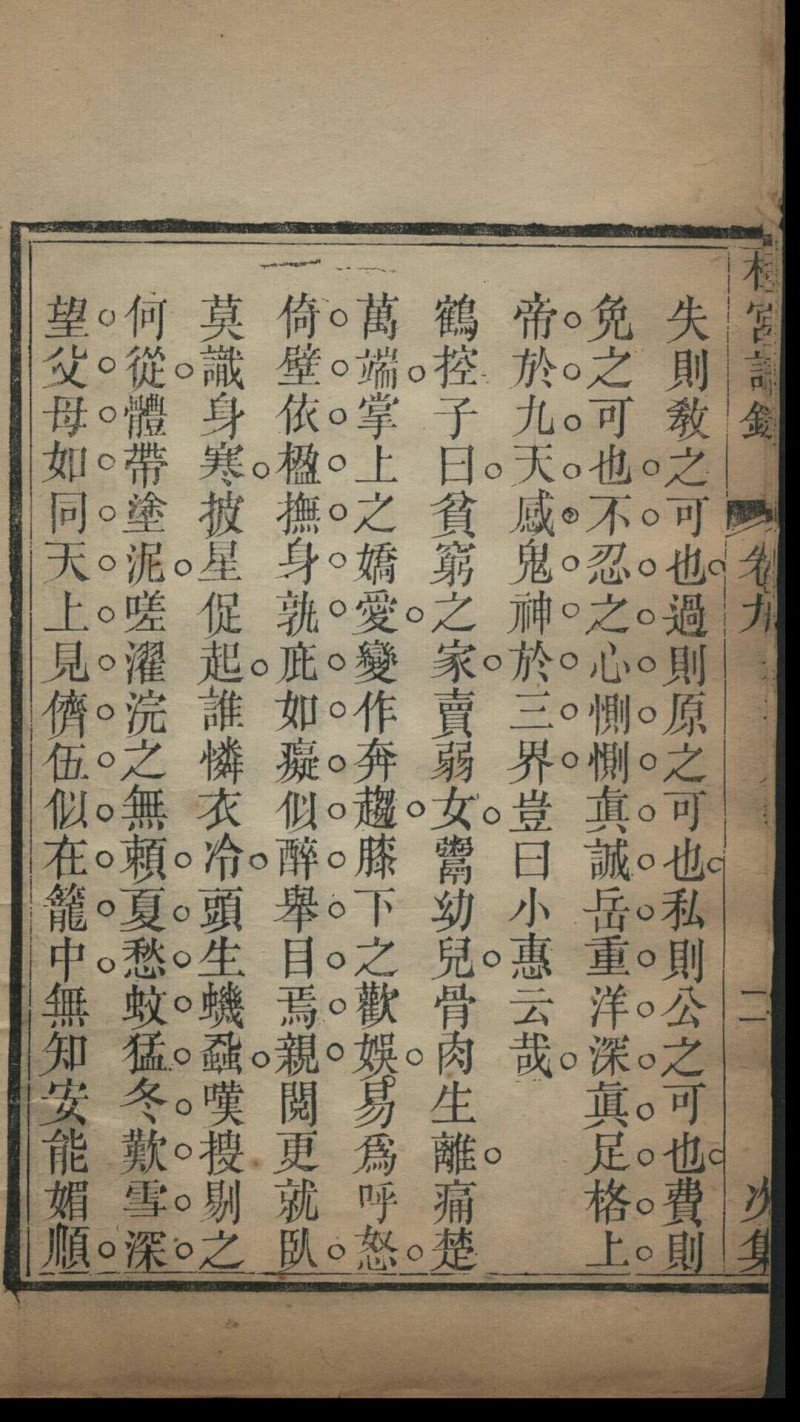 桂宮誥錄 卷九 二 次集
失則敎之可也過則原之可也私則公之可也費則
免之可也不忍之心惻惻眞誠岳重洋深眞足格上
帝於九天感鬼神於三界豈曰小惠云哉
鶴控子曰貧窮之家賣弱女鬻幼兒骨肉生離痛楚
萬端掌上之嬌愛變作奔趨膝下之歡娛易爲呼怒
倚壁依楹撫身孰庇如癡似醉舉目焉親閱更就臥
莫識身寒披星促起誰憐衣冷頭生蟣蝨嘆搜剔之
何從體帶塗泥嗟濯浣之無賴夏愁蚊猛冬歎雪深
望父母如同天上見儕伍似在籠中無知安能媚順